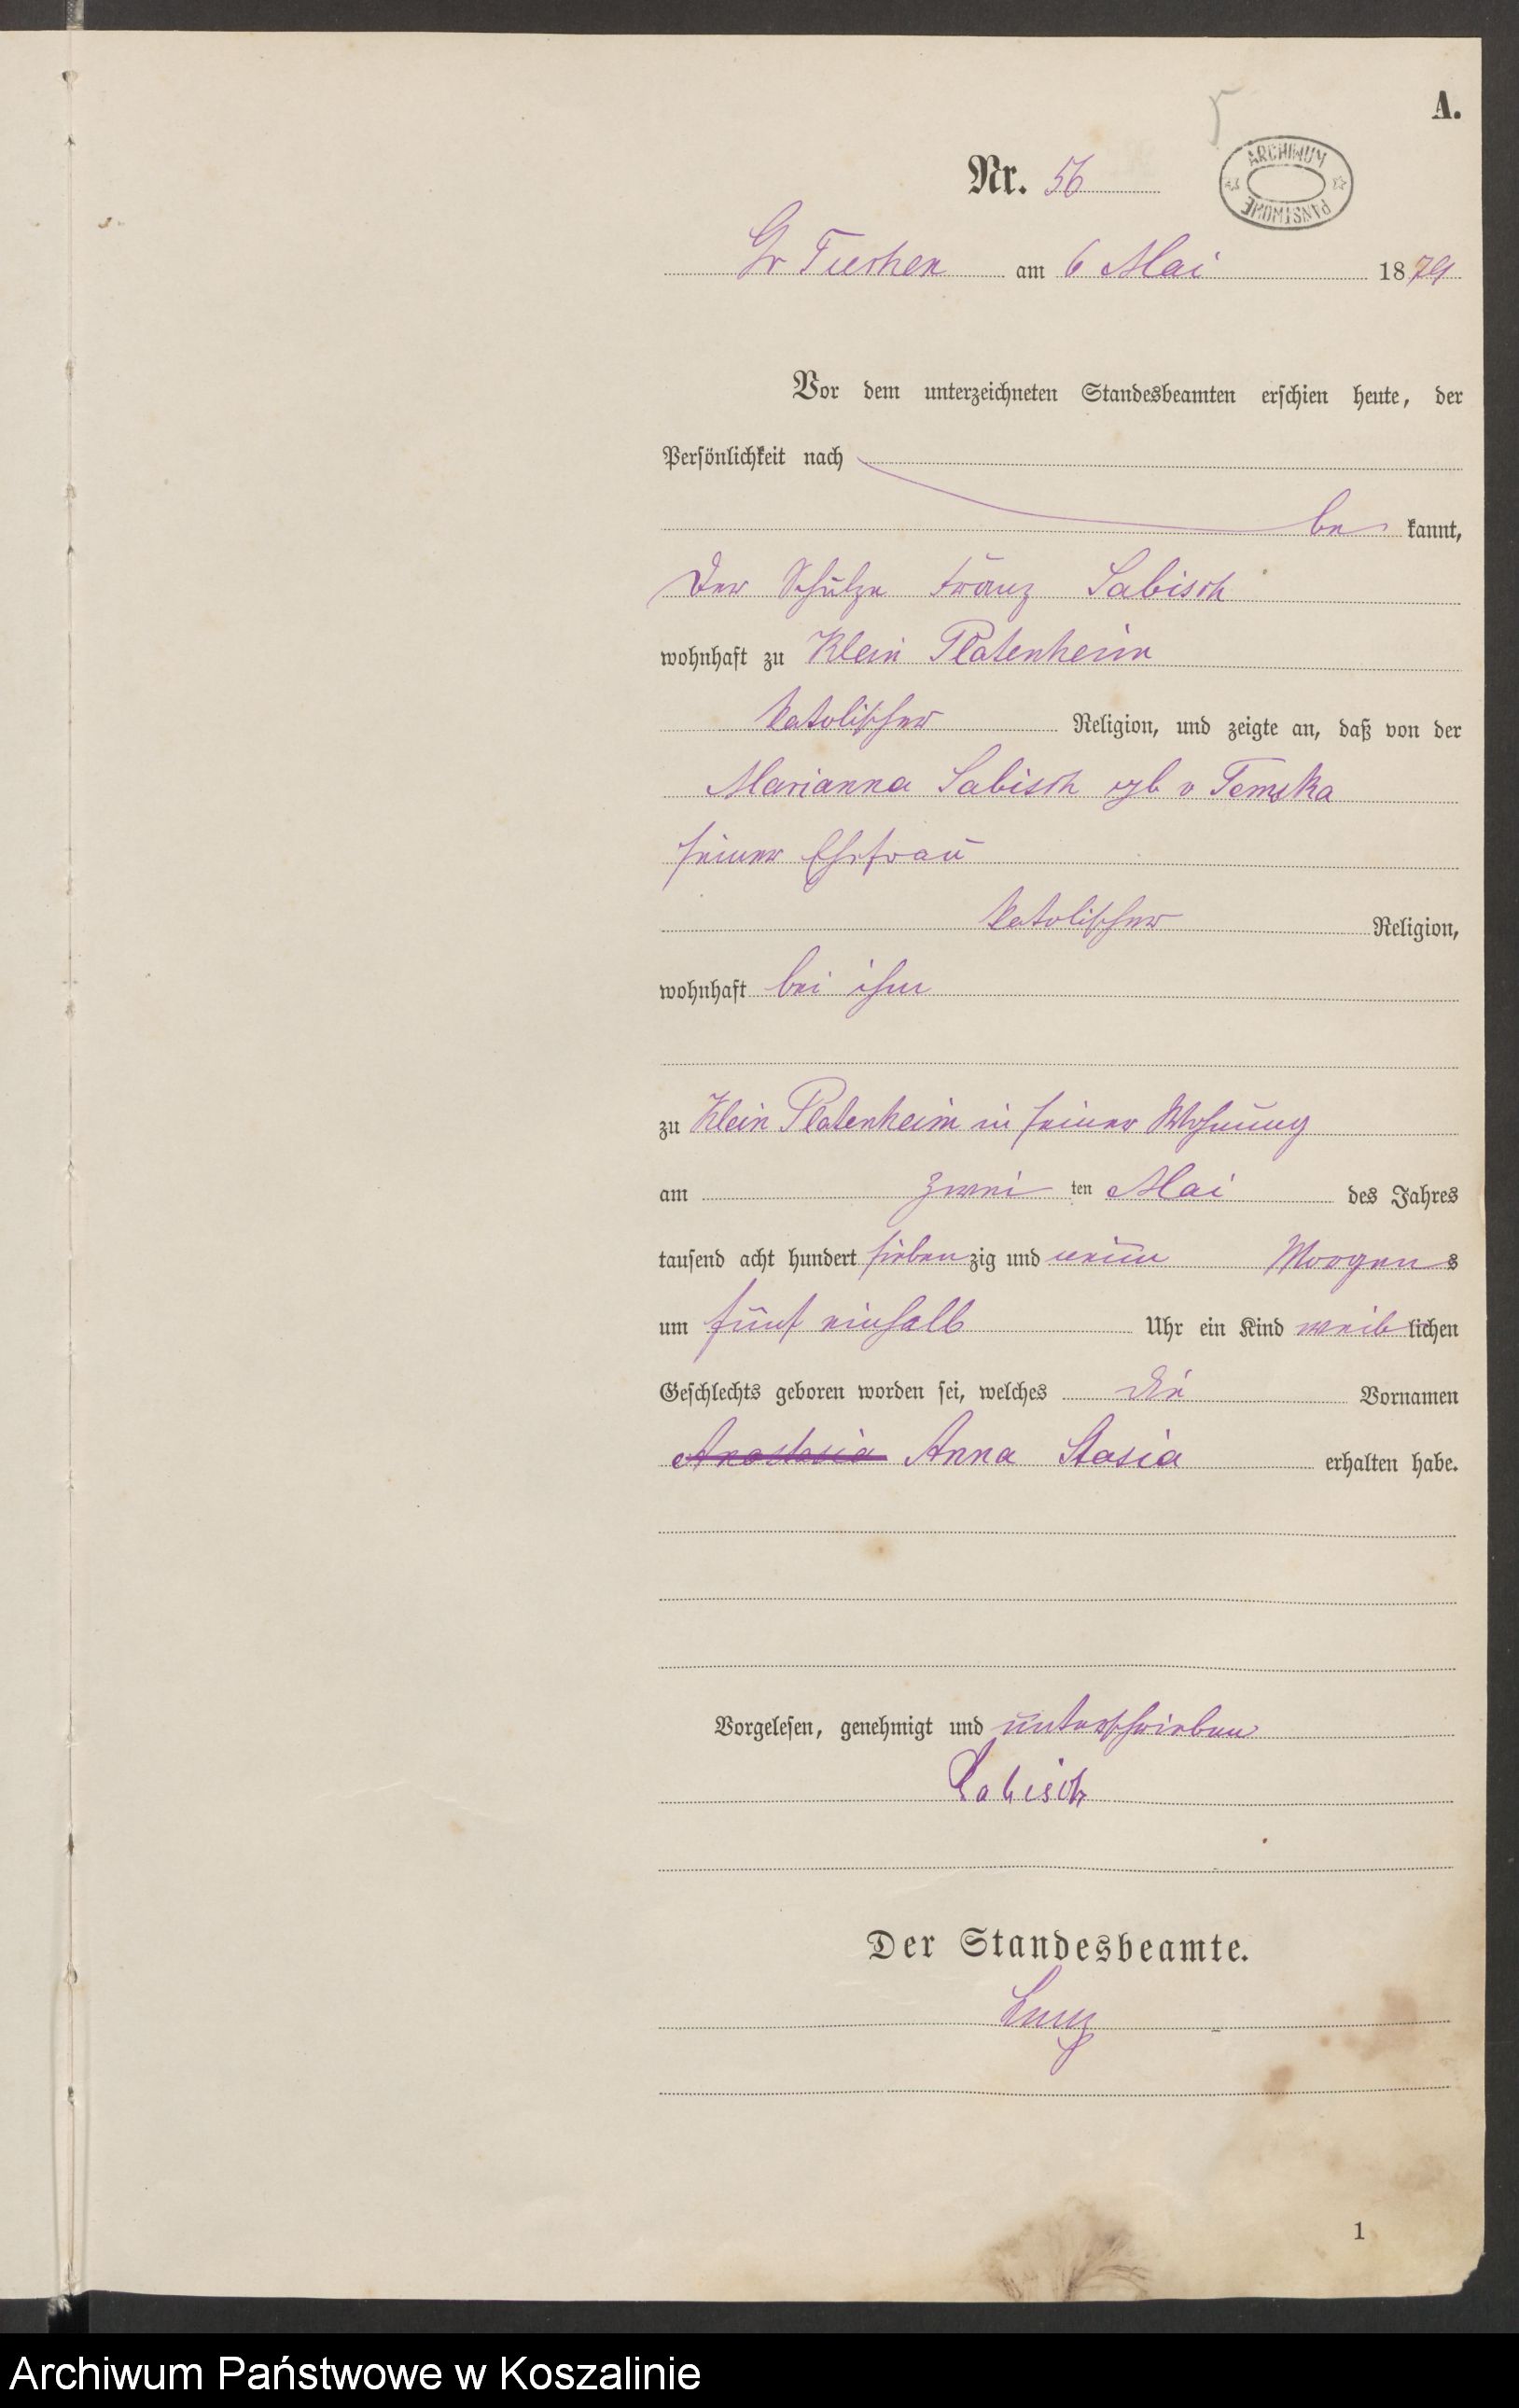 A.
5
Nr. 56
ARCHIWUM PAŃSTWOWE
Gr Tuchen am 6 Mai 1879
Vor dem unterzeichneten Standesbeamten erschien heute, der
Persönlichkeit nach
be kannt,
Der Schulze Franz Sabisch
wohnhaft zu Klein Platenheim
katolischer Religion, und zeigte an, daß von der
Marianna Sabisch geb v Temska
seiner Ehefrau
katolischer Religion,
wohnhaft bei ihm
zu Klein Platenheim in seiner Wohnung
am zwei ten Mai des Jahres
tausend acht hundert siebenzig und neun Morgens
um fünf einhalb Uhr ein Kind weiblichen
Geschlechts geboren worden sei, welches die Vornamen
Anastasia Anna Stasia erhalten habe.
Vorgelesen, genehmigt und unterschrieben
Sabisch
Der Standesbeamte.
1
Archiwum Państwowe w Koszalinie